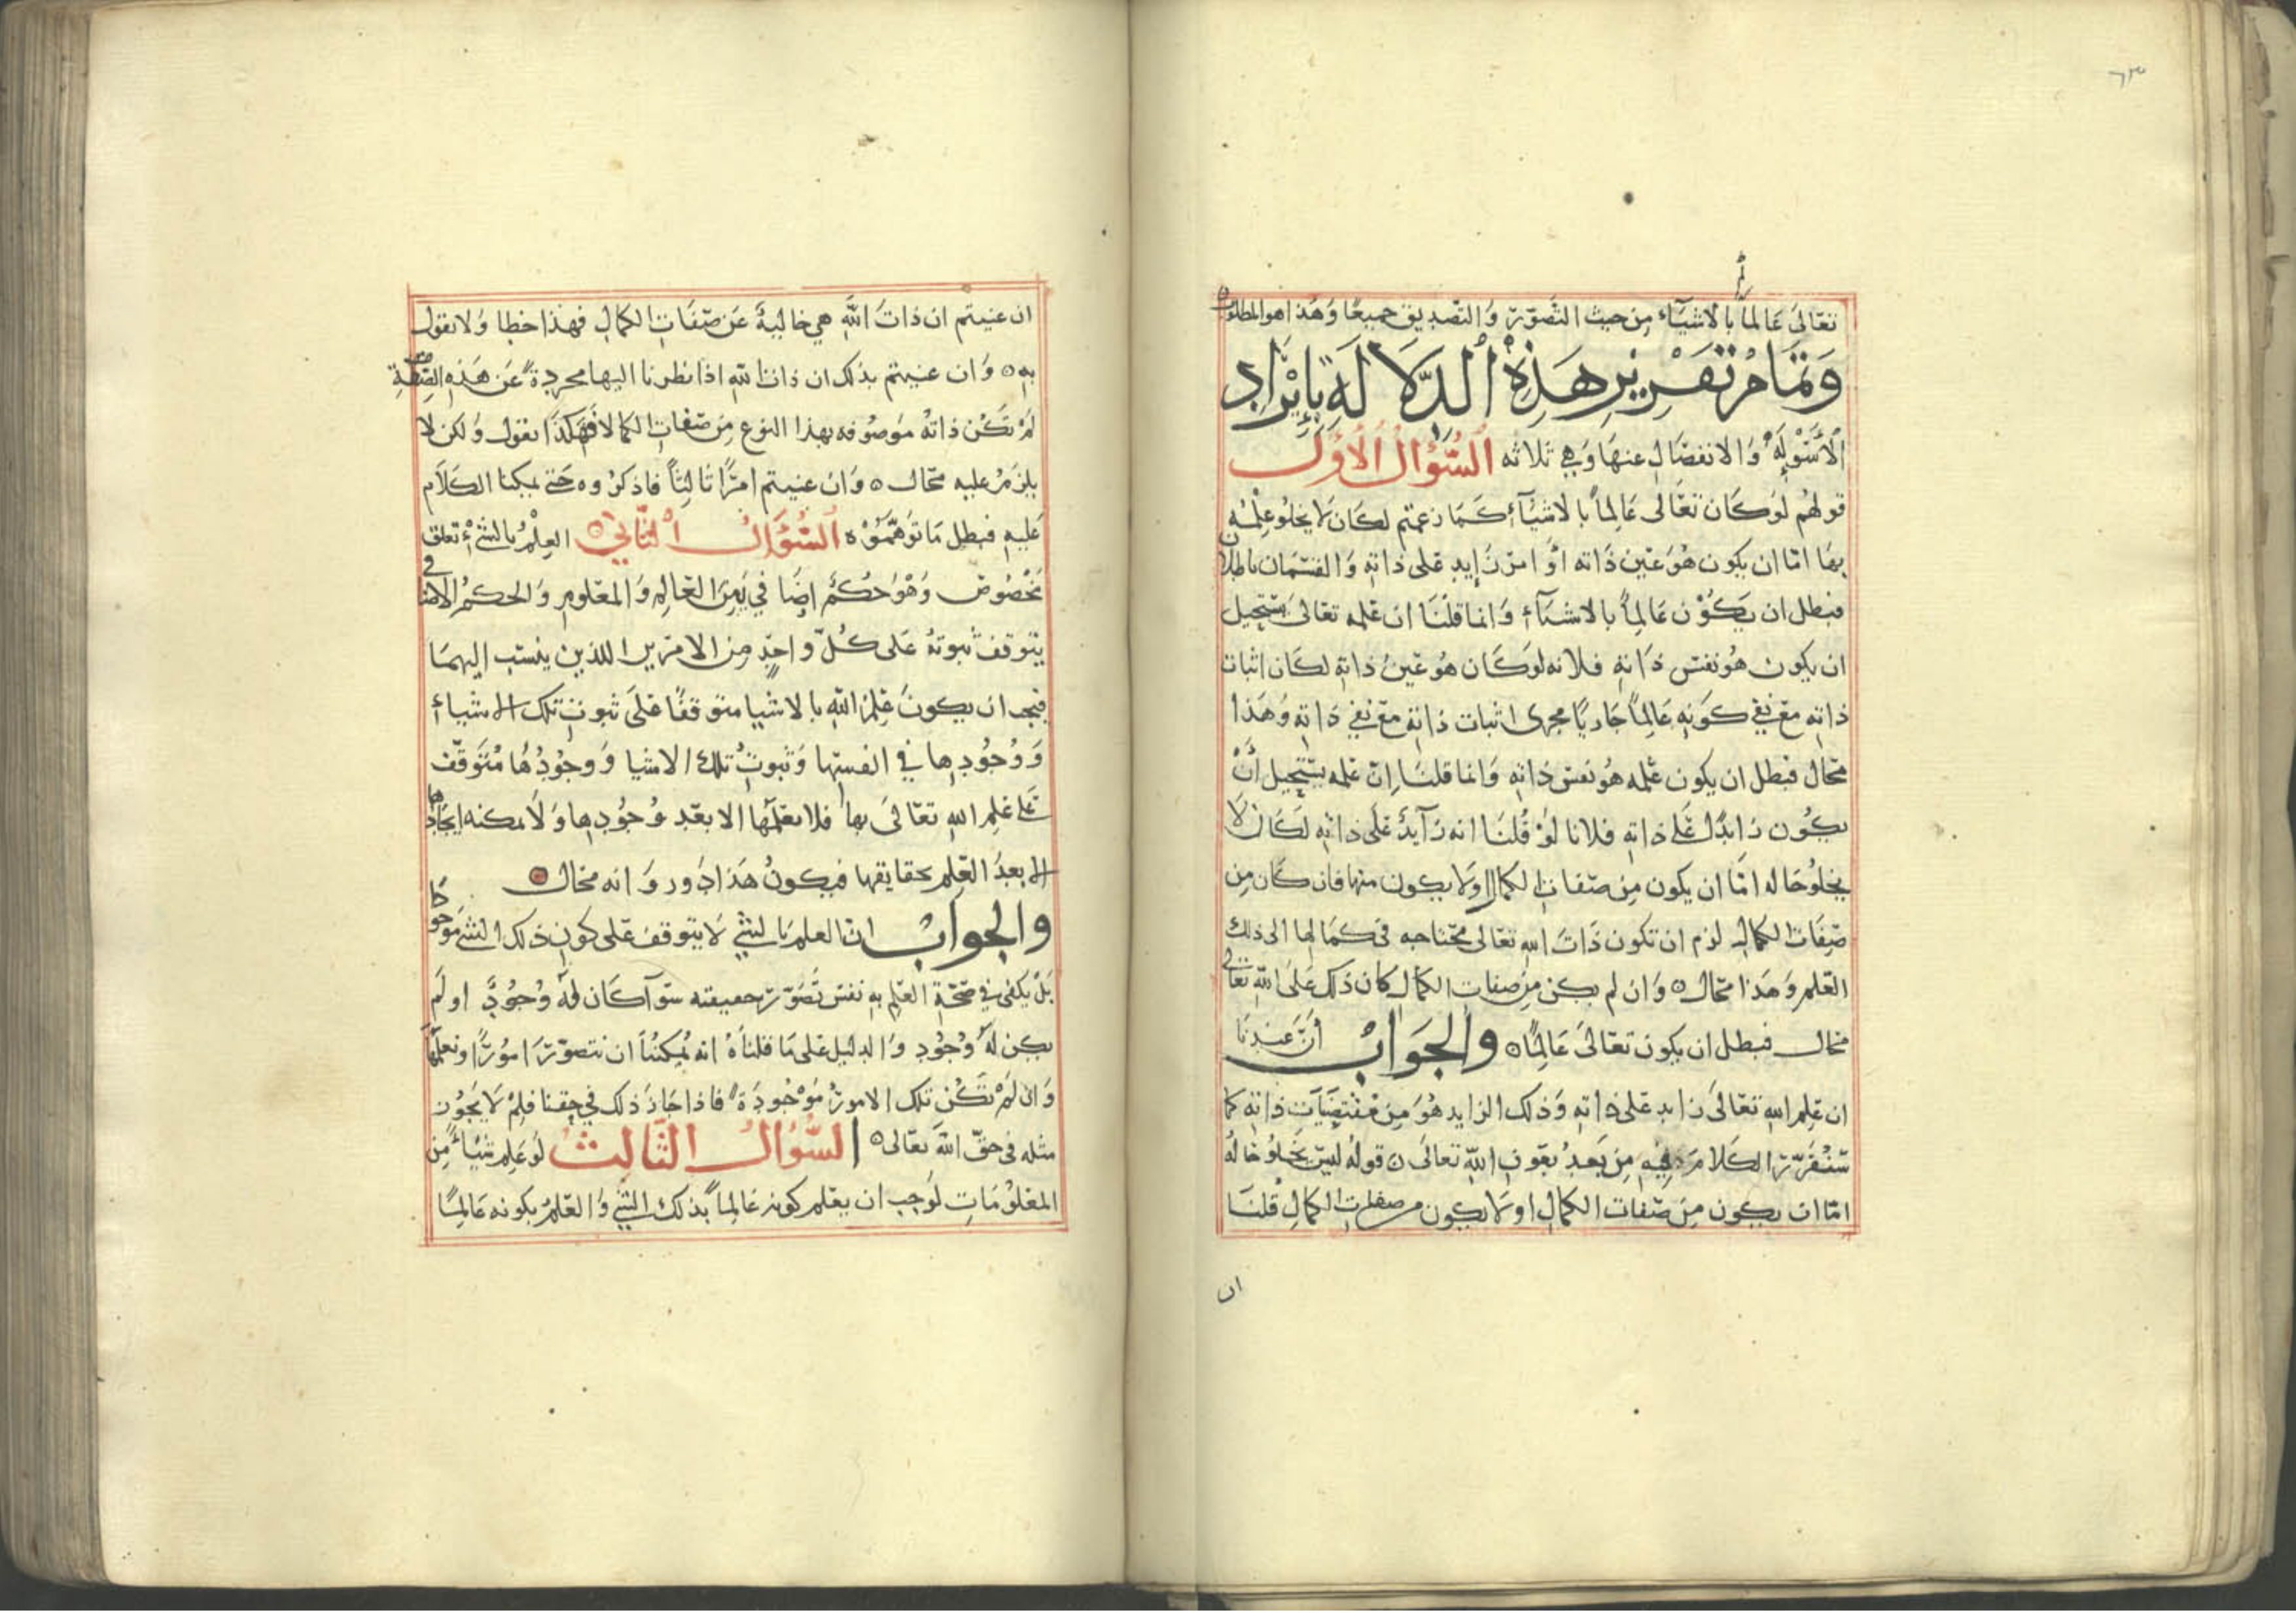 ٦٣
تعالى عَالماً بالاشيآء مِن حيث التصَوّر وَالتصديق جميعًا وَهَذا هو المطلوب
وَتَمَامُ تَقْرِيْرِ هَذِهِ الدِّلَالَةِ بِإِيْرَادِ
الْأَسْوِلَهِ وَالانفصَالِ عنهَا وَهِي ثلاثه السُّؤالُ الْأَوَّلُ
قولهُم لوْكَان تعَالى عَالِماً بالاشيَآءِ كَمَا زعمتم لكَان لَا يخلُو عِلْمُه
بهَا امّا ان يكون هُوَ عَين ذَاته اوْ امر زَايدٍ عَلى ذاتِهِ وَالقسْمَان باطلان
فبطل ان يَكُوْن عَالِماً بالاشيَآءِ وَانما قلْنَا ان عِلمه تعَالى يَسْتحِيل
ان يكون هُو نفسَ ذَاتِهِ فلانه لوكَان هُو عَينُ ذاتِهِ لكَان اثبات
ذاتِهِ مَع نفي كَونِهِ عَالماً جَاريًا مجرى اثبات ذاتهِ مَع نفي ذَاتِهِ وَهَذا
محَال فبطل ان يكون عِلمه هُو نفسَ ذاتِهِ وَانما قلنَا اِنّ عِلمه يسْتحِيل اَنْ
يكُون زايدًا عَلى ذاتِهِ فلانا لوْ قُلنَا انه زَآيدٌ عَلَى ذاتِهِ لكَانَ لَا
يخلُو حَاله امَّا ان يكون مِن صفات الكمال اولَا يكون منها فان كَان مِن
صِفَات الكمالِ لزم ان تكون ذَات الله تعَالى محتاجه في كمَالها الى ذلك
العِلم وَهَذا محَال ٥ وَان لم يكن مِن صفات الكمال كان ذلك عَلَى الله تعالى
محال فبطل ان يكون تعَالىَ عَالِمًا ٥ وَالجَوَابُ أنَّ عندنَا
ان عِلم الله تعَالىَ زايد عَلى ذاتِهِ وَذلك الزايد هُوَ مِن مُقْتضَيَاتِ ذاتِهِ كما
سَنُقَرّر الكَلَام فِيْهِ مِن بَعدُ بعَون الله تعَالى ٥ قولهُ ليسَ يَخلُو حَالُهُ
امّا ان يكون مِن صفات الكمالِ او لَا يكون من صفات الكمالِ قلنَا
ان
ان عنيتم ان ذاتَ اللهِ هي خاليةً عَن صفَاتِ الكمالِ فهذا خطا وَلا نقول
بهِ ٥ وَان عنيتم بذلك ان ذات اللهِ اذا نظرنا اليها مجردةً عَن هَذِهِ الصِّفَةِ
لَم تَكُنْ ذاتهُ مَوصُوفه بهذا النوع مِن صفات الكمال فَهَكذَا نقول وَلكن لا
يلزَمُ عليهِ محَال ٥ وَان عنيتم امْرًا ثالثًا فاذكرُوه حَتى يمكننا الكَلَام
عَليهِ فبطل مَا تَوَهَّمُوْهُ السُّؤَالُ الْثَّانِي ٥ العِلْمُ بالشيْءِ تعلق
مَخْصُوصٌ وَهُوَ حُكْمٌ اضَافي بَيْنَ العَالِمِ وَالمعلومِ وَالحكمُ الاضافي
يتوقف ثبوتهُ عَلى كُلِّ واحِدٍ مِن الامرَين اللذين ينسَب اليهمَا
فيجب ان يكونَ عِلمُ اللهِ بالاشيا متوقفًا عَلىَ ثبوتِ تلك الاشياءِ
وَوُجُوْدِهَا في انفسِهَا وَثبوتُ تلك الاشيا وَوجُوْدُهَا مُتَوقّف
عَلى عِلم اللهِ تعَالىَ بهَا فلا يعْلمُهَا الا بعْد وُجُوْدِهَا وَلَا يمكنه ايجَادها
الا بعدَ العِلم بحقايقها فيكونُ هَذا دَور وَانه محَال ٥
وَالجوابُ انّ العلم بالشيْ لَا يتوقف عَلى كون ذلك الشيْ موجودًا
بَلْ يكفي في صحَّةِ العِلم بهِ نفسُ تَصَوّر حقيقته سَوَآ كَان لهُ وُجُوْدٌ او لَم
يكن لَهُ وُجُوْد وَالدليل عَلى مَا قلنَاهُ انه يُمكننَا ان نتصوّرَ امُوْرًا ونعلمَهَا
وَان لَم تَكُن تلك الامورُ مَوْجُودَةً فاذا جَاز ذلك في حقنا فلِمْ لَا يَجُوْز
مثله في حقّ الله تعَالى ٥ السُّؤالُ الثَّالِثُ لوْعَلِم شيْأً مِن
المعْلُوْمَات لوَجب ان يعْلم كونه عَالماً بذلك الشيْ وَالعِلْمُ بكونه عَالِمًا